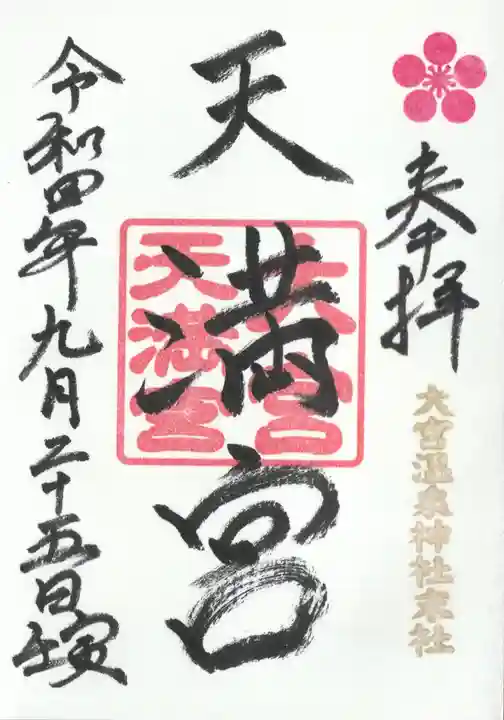 奉拝
大宮温泉神社末社
天満宮
天満宮
令和四年九月二十五日壬寅